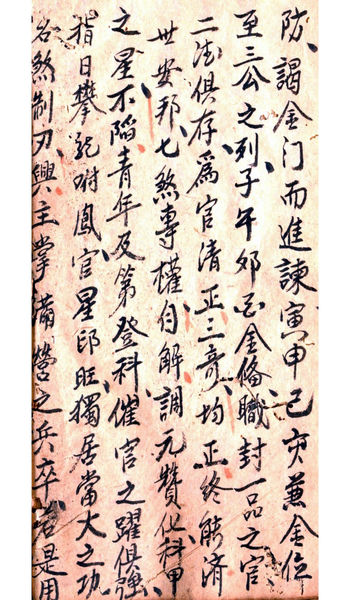 防謁金门而進諫寅申巳亥兼全位
至三公之列子午夘酉全俻職封一品之官
二法俱存爲官清正三竒均正终能济
世安邦七煞專權自解調元贊化科甲
之星不陷青年及第登科催官之躍俱强
指日攀龍咐鳳官星印旺獨居當大之功
名煞制刃興主掌滿營之兵卒若是用